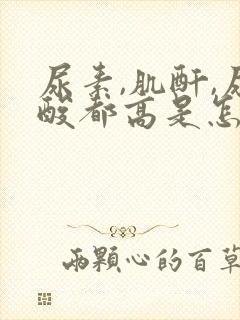 尿素,肌酐,尿
酸都高是怎
两颗心的百草